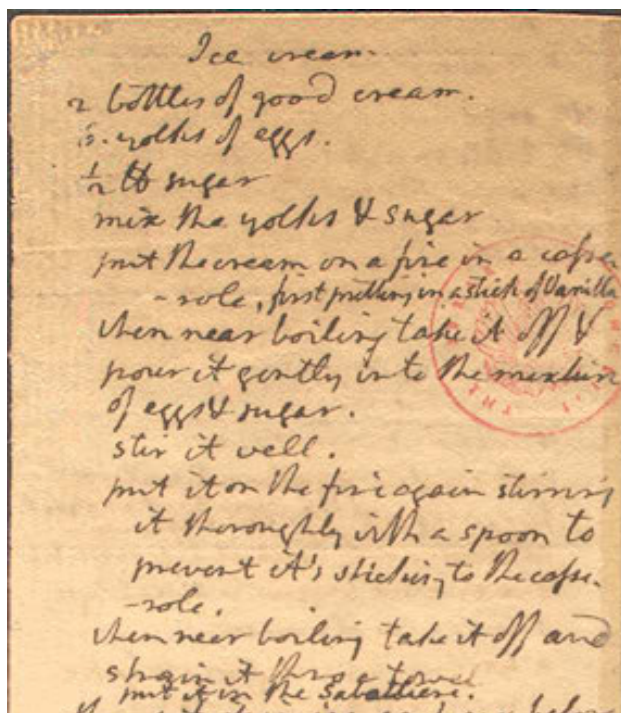 Ice cream.
2 bottles of good cream.
6. yolks of eggs.
½ ℔ sugar
mix the yolks & sugar
put the cream on a fire in a casse
-role, first putting in a stick of Vanilla
when near boiling take it off &
pour it gently into the mixture
of eggs & sugar.
stir it well.
put it on the fire again stirring
it thoroughly with a spoon to
prevent it's sticking to the casse-
-role.
when near boiling take it off and
strain it thro' a towel
put it in the Sabottiere.